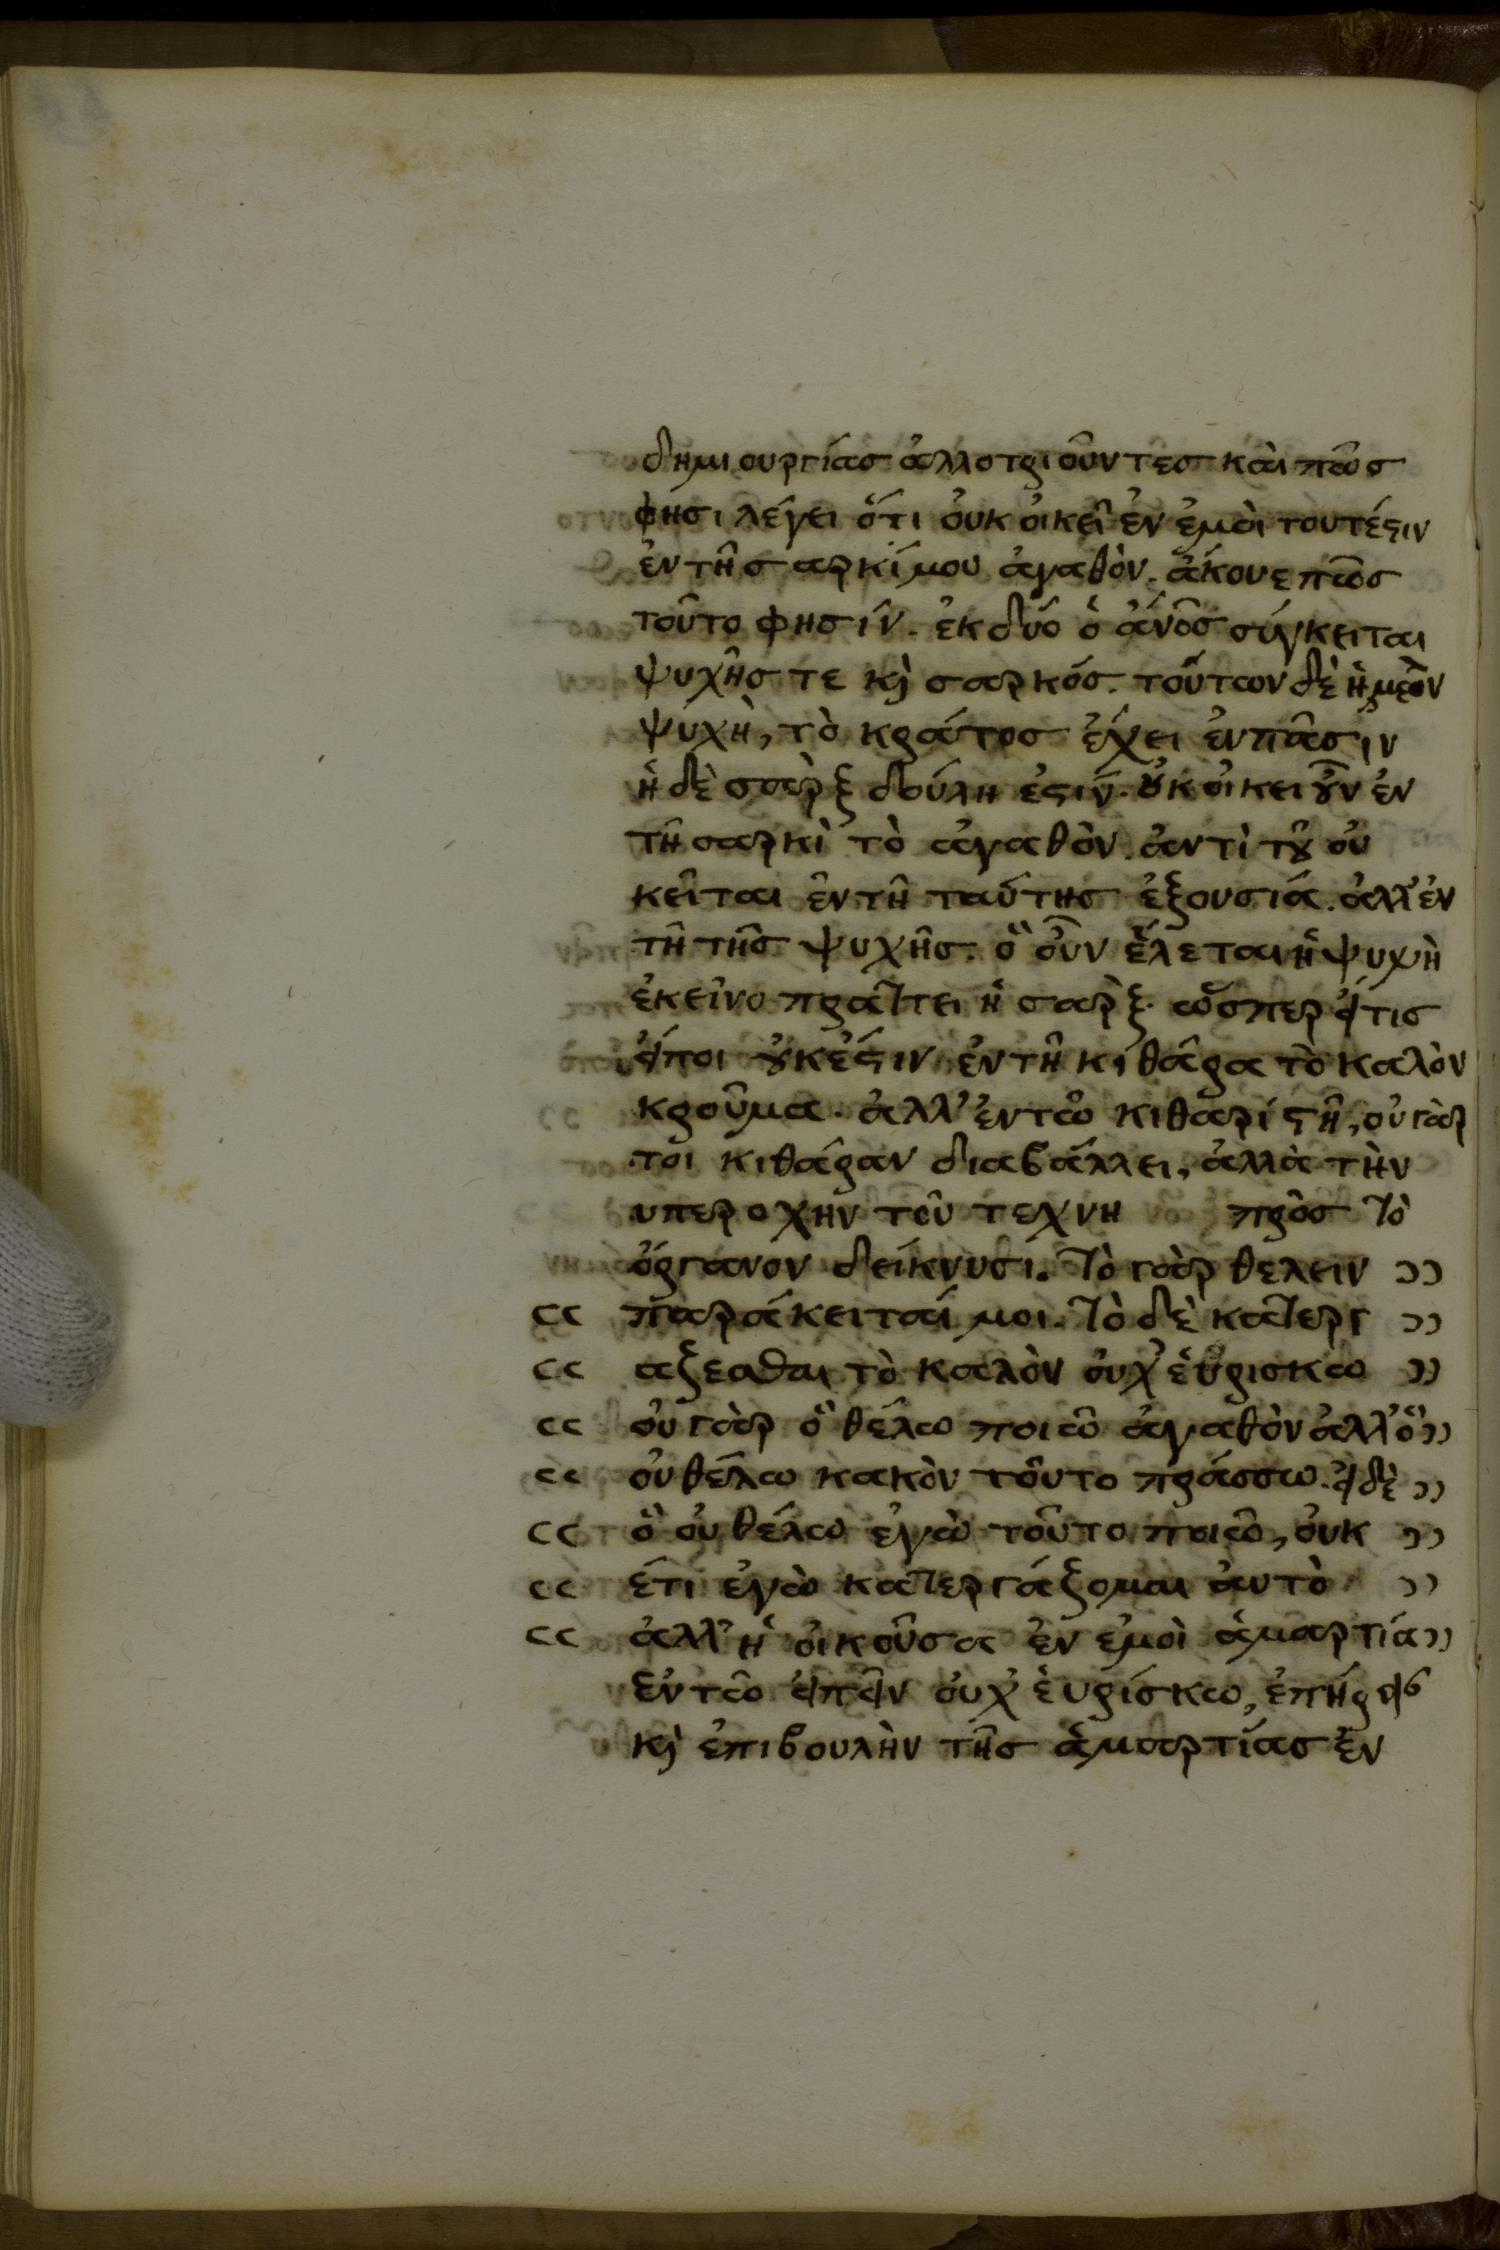 δημιουργίας ἀλλοτριοῦντες καὶ πῶς
φησι λέγει ὅτι οὐκ οἰκεῖ ἐν ἐμοὶ τουτέϛιν
ἐν τῆ σαρκί μου ἀγαθὸν. ἄκουε πῶς
τοῦτο φησίν. ἐκ δύο ὁ ἄνος σύγκειται
ψυχῆς τε κ̀ σαρκός. τούτων δὲ ἡ μὲν
ψυχὴ, τὸ κράτος ἔχει ἐν πᾶσιν
ἡ δὲ σαρξ δούλη ἐϛιν. ȣ̓κ οἰκει ȣ̓ν ἐν
τῆ σαρκὶ τὸ ἀγαθὸν. ἀντὶ τȣ̃ οὐ
κεῖται ἐν τῆ ταύτης ἐξουσία. ἀλλ' ἐν
τῆ τῆς ψυχῆς. ὃ οὖν ἕλεται ἡ ψυχὴ
ἐκεῖνο πράττει ἡ σαρξ. ὥσπερ εἴ τις
εἴποι ȣ̓κ ἔϛιν ἐν τῆ κιθάρα τὸ καλὸν
κροῦμα. ἀλλ' ἐν τῶ κιθαρίϛῆ, οὐ γὰρ
τοι κιθάραν διαβάλλει, ἀλλὰ τὴν
υπεροχην τοῦ τεχνη πρὸς τὸ
ὄργανον δείκνυσι. τὸ γὰρ θελειν ͻͻ
cc παράκειταί μοι. τὸ δὲ κατεργ ͻͻ
cc αξεσθαι τὸ καλὸν οὐχ' εὑρισκω ͻͻ
cc οὐ γὰρ ὃ θέλω ποιῶ ἀγαθὸν ἀλλ' ὃ ͻͻ
cc οὐ θέλω κακὸν τοῦτο πράσσω. εἰ δὲ ͻͻ
cc ὃ οὐ θέλω ἐγὼ τοῦτο ποιῶ, οὐκ ͻͻ
cc έτι ἐγὼ κατεργάξομαι αυτὸ ͻͻ
cc ἀλλ' ἡ οἰκοῦσα ἐν ἐμοὶ ἁμαρτία ͻͻ
ἐν τῶ εἰπεῖν οὐχ' εὑρίσκω, ἐπήρει
κ̀ ἐπιβουλὴν τῆς ἁμαρτίας ἐν